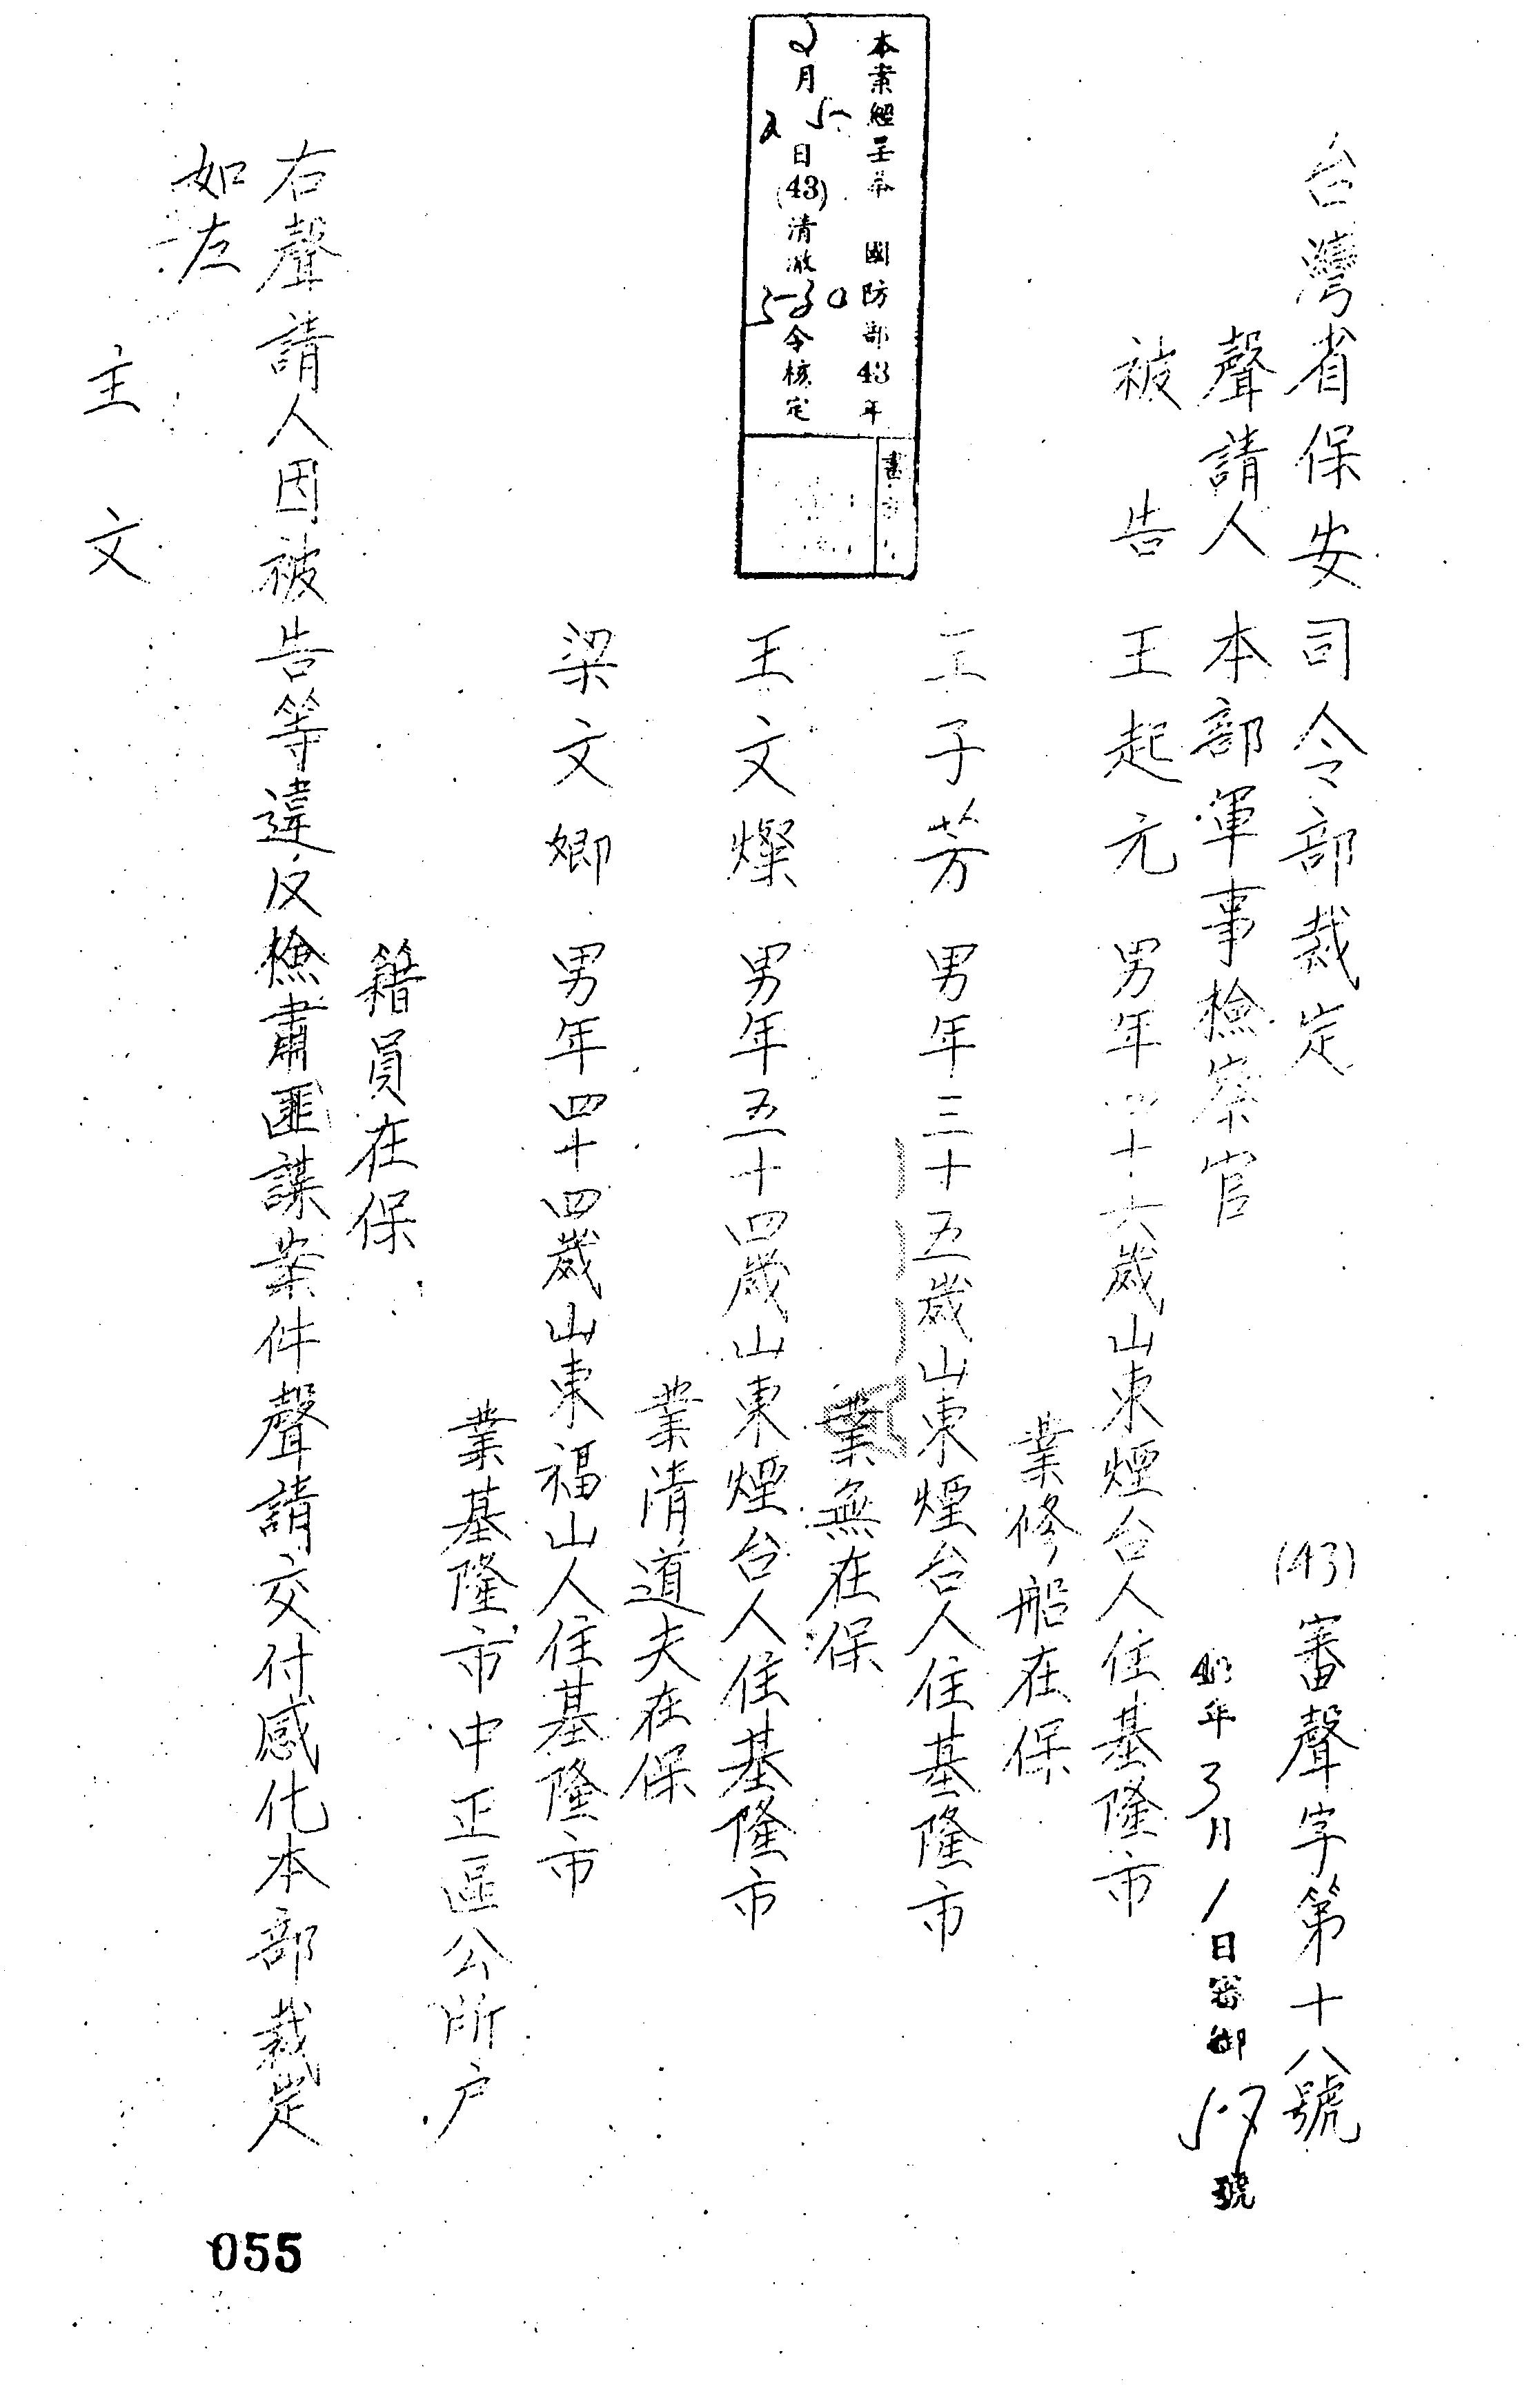 台灣省保安司令部裁定
(43)審聲字第十八號
43年3月1日審御57號
聲請人 本部軍事檢察官
被告 王起元 男年四十六歲山東煙台人住基隆市
業修船在保
王子芳 男年三十五歲山東煙台人住基隆市
業無在保
王文燦 男年五十四歲山東煙台人住基隆市
業清道夫在保
梁文卿 男年四十四歲山東福山人住基隆市
業基隆市中正區公所户
籍員在保
本案經呈奉 國防部43年
2月25日(43)清澈530令核定
右聲請人因被告等違反檢肅匪諜案件聲請交付感化本部裁定
如左
主文
055